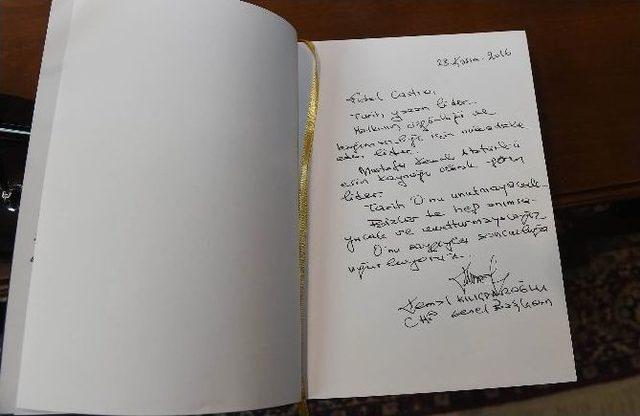 28 Kasım 2016
Fidel Castro,
Tarih yazan lider..
Halkının özgürlüğü ve
bağımsızlığı için mücadele
eden lider..
Mustafa Kemal Atatürk'ü
esin kaynağı olarak gören
lider.
Tarih O'nu unutmayacak..
Bizler de hep anımsa-
yacak ve unutturmayacağız.
O'nu saygıyla sonsuzluğa
uğurluyoruz..
Kemal KILIÇDAROĞLU
CHP Genel Başkanı